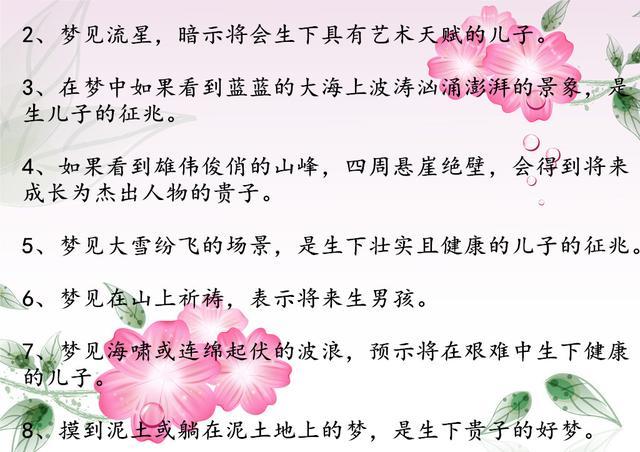 2、梦见流星，暗示将会生下具有艺术天赋的儿子。
3、在梦中如果看到蓝蓝的大海上波涛汹涌澎湃的景象，是
生儿子的征兆。
4、如果看到雄伟俊俏的山峰，四周悬崖绝壁，会得到将来
成长为杰出人物的贵子。
5、梦见大雪纷飞的场景，是生下壮实且健康的儿子的征兆。
6、梦见在山上祈祷，表示将来生男孩。
7、梦见海啸或连绵起伏的波浪，预示将在艰难中生下健康
的儿子。
8、摸到泥土或躺在泥土地上的梦，是生下贵子的好梦。